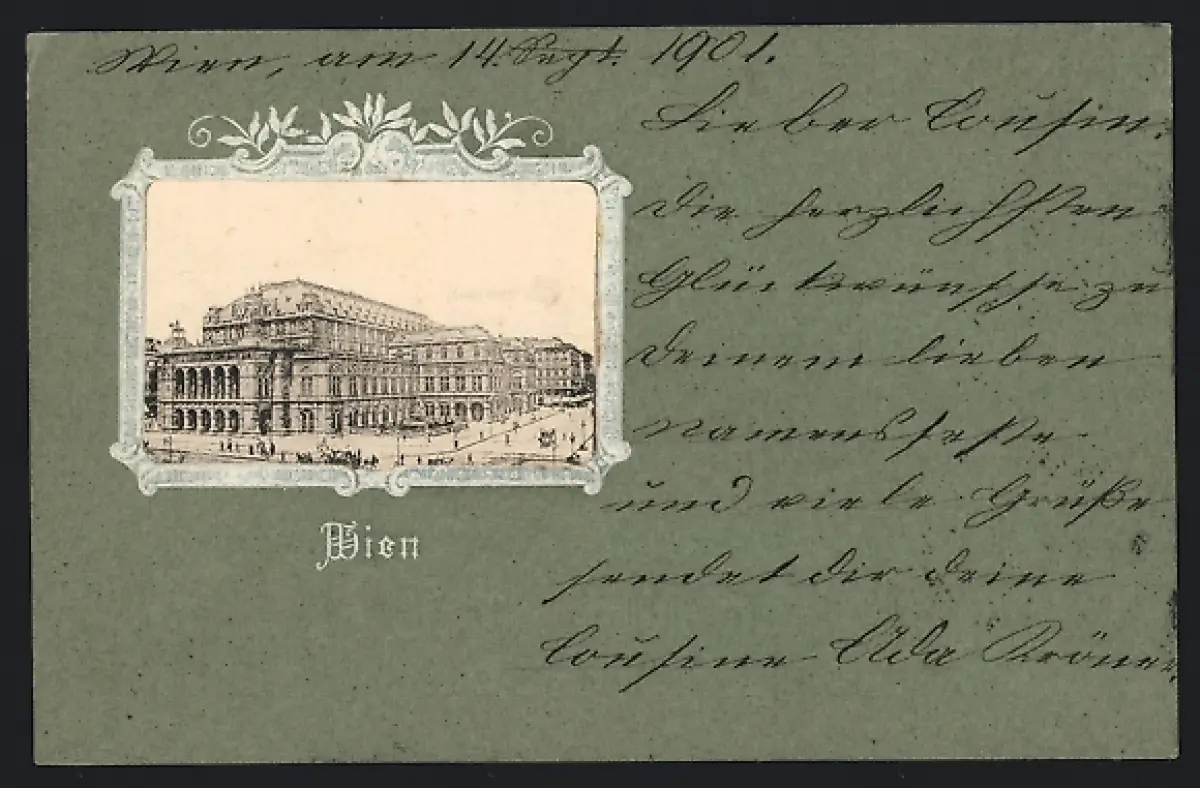 Wien, am 14. Sept. 1901.
Lieber Cousin.
Die herzlichsten
Glückwünsche zu
Deinem lieben
Namensfeste
und viele Grüße
sendet dir deine
Cousine Ada Kröner
Wien